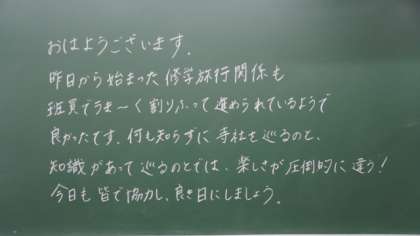 おはようございます。
昨日から始まった修学旅行関係も
班員でうま〜く割りふって進められているようで
良かったです。何も知らずに寺社を巡るのと、
知識があって巡るのとでは、楽しさが圧倒的に違う!
今日も皆で協力し、良き日にしましょう。